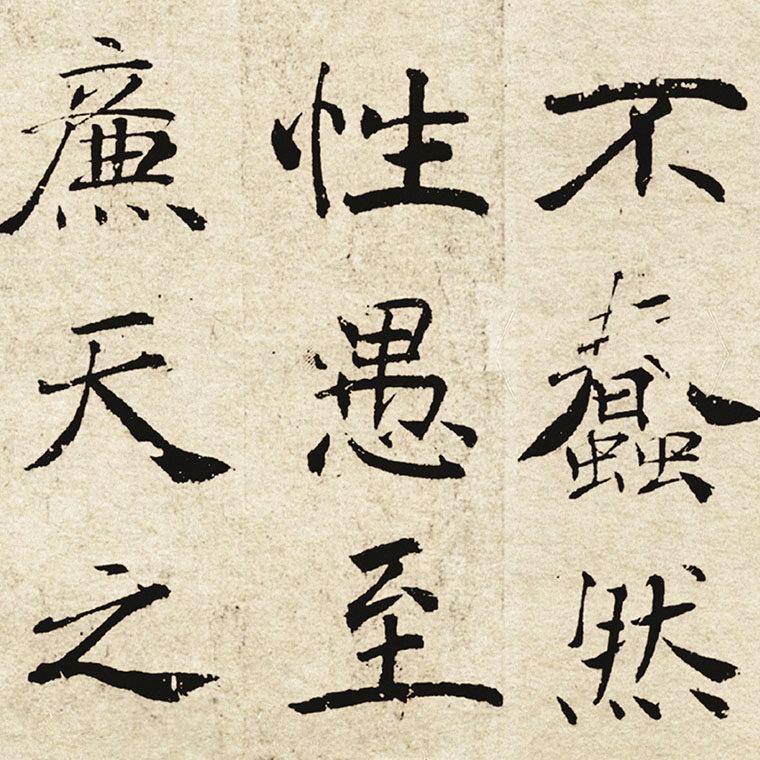 不蠢然
性愚至
廉天之